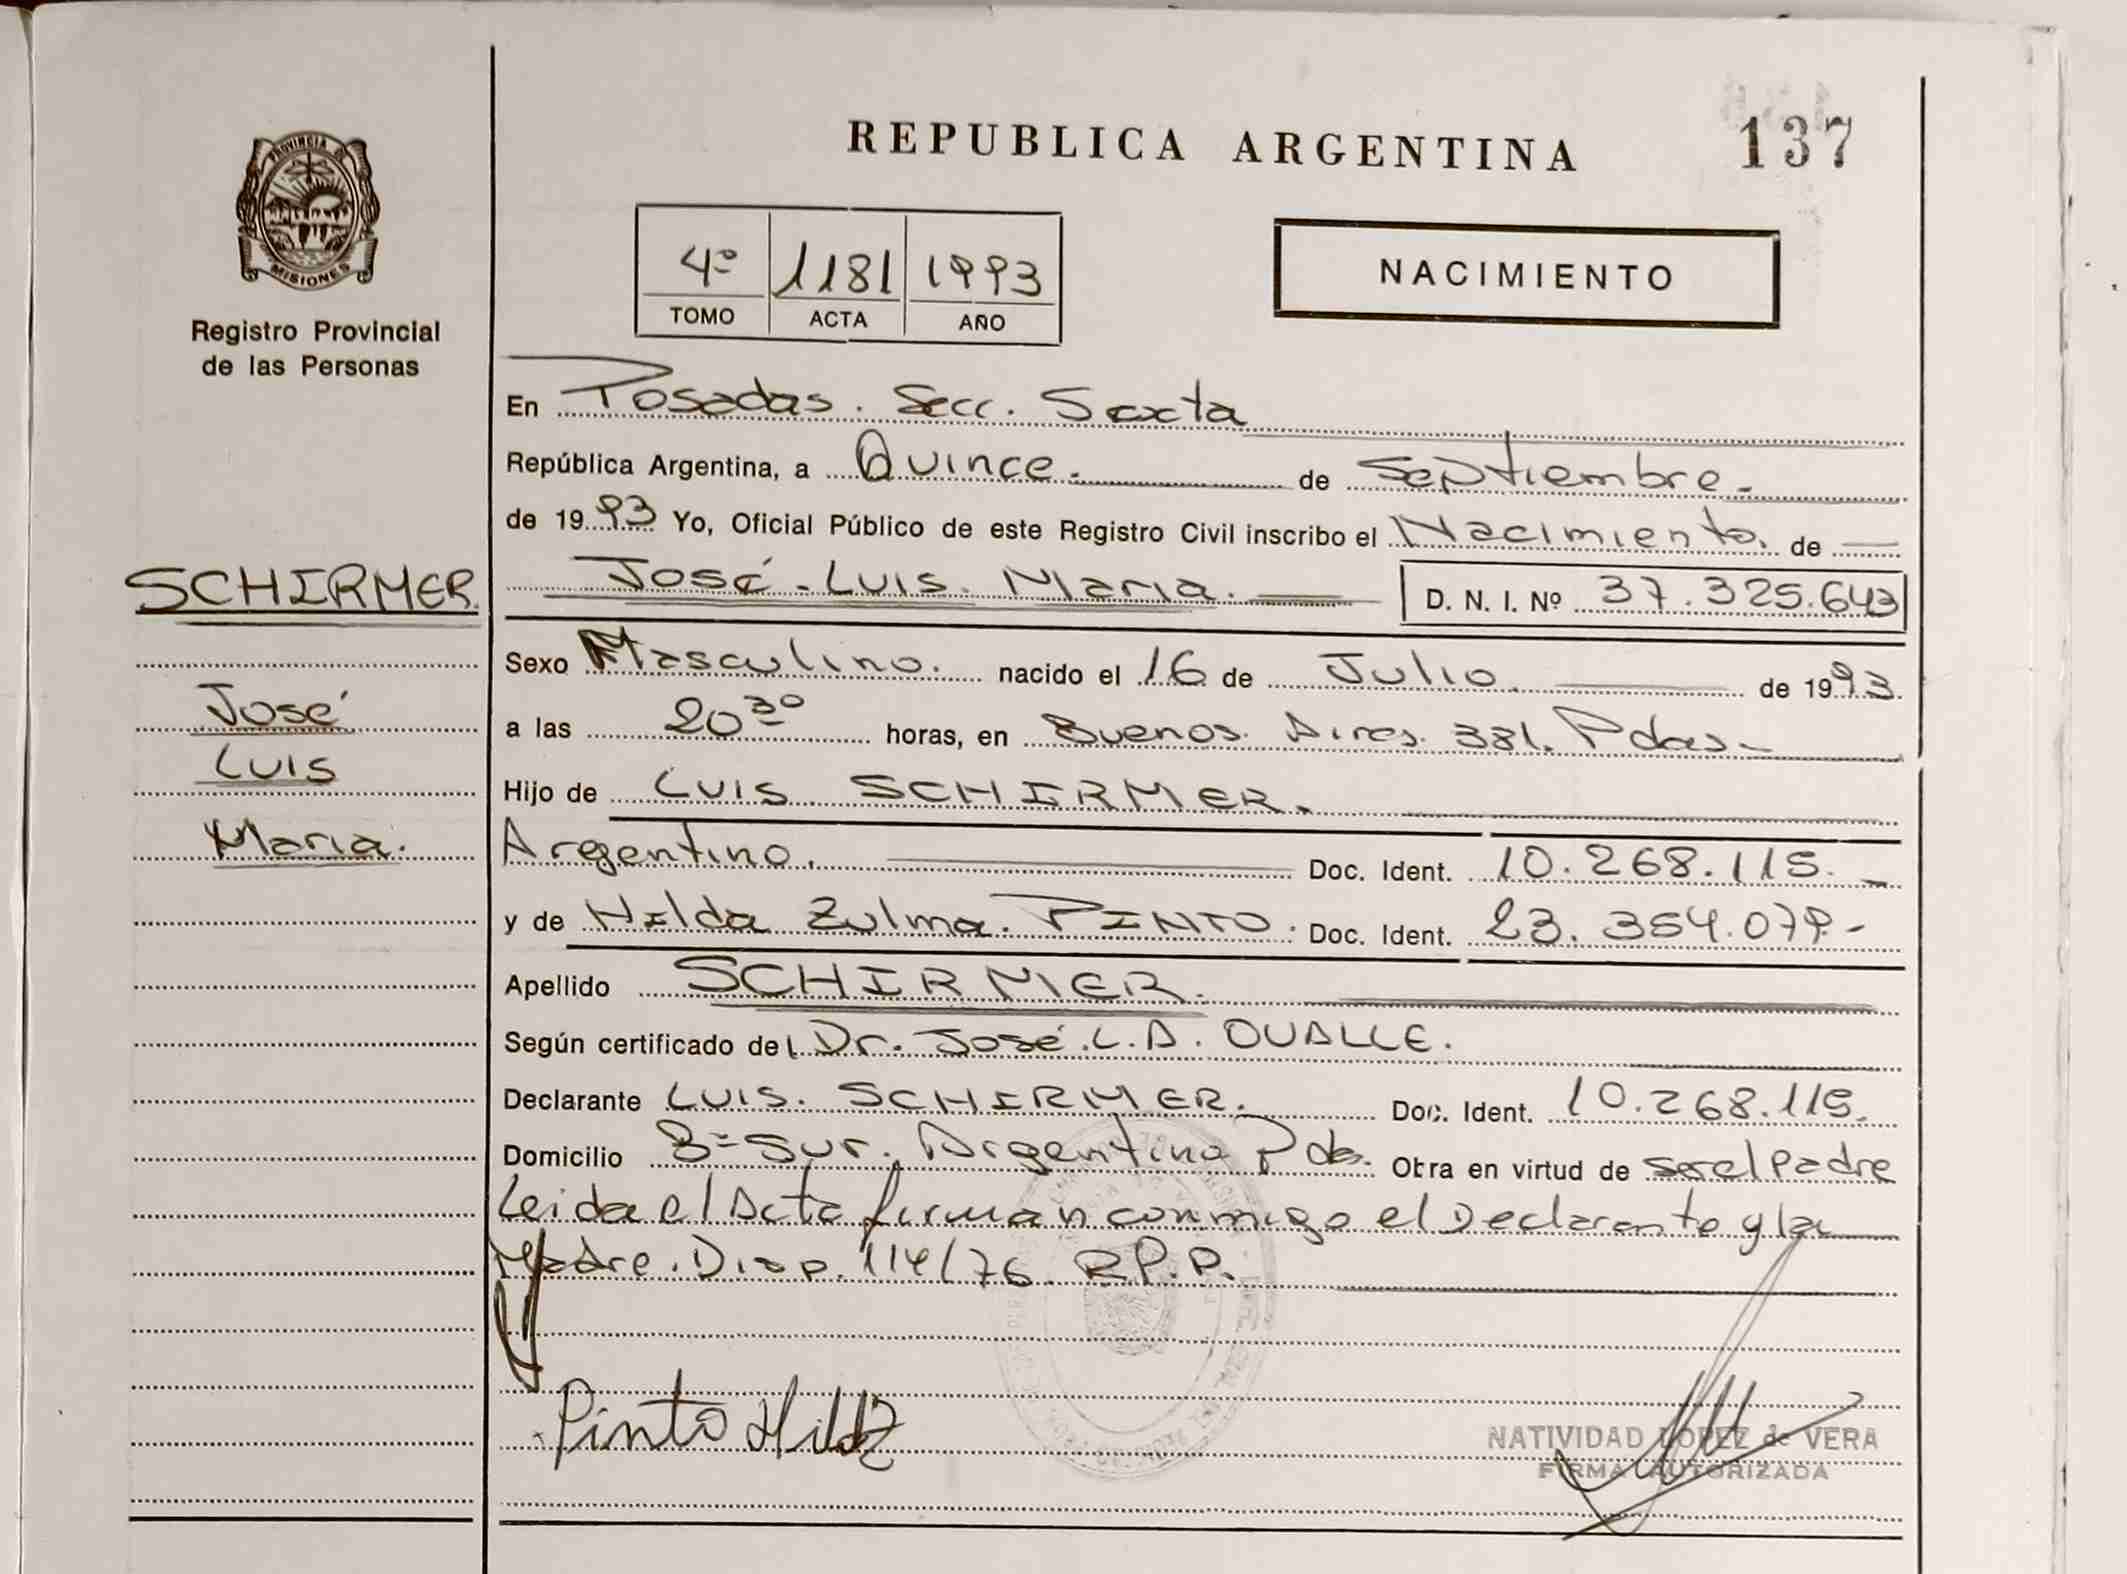 REPUBLICA ARGENTINA
137
PROVINCIA
MISIONES
Registro Provincial
de las Personas
4º 1181 1993
TOMO ACTA AÑO
NACIMIENTO
En Posadas. Secc. Sexta
República Argentina, a Quince. de Septiembre.
de 1993 Yo, Oficial Público de este Registro Civil inscribo el Nacimiento. de
José. Luis. Maria. D. N. I. Nº 37.325.643
SCHIRMER.
José
Luis
Maria.
Sexo Masculino. nacido el 16 de Julio. de 1993.
a las 20 30 horas, en Buenos. Aires. 381. Pdas-
Hijo de Luis SCHIRMER.
Argentino. Doc. Ident. 10.268.115.
y de Hilda Zulma. PINTO. Doc. Ident. 23.354.079.-
Apellido SCHIRMER.
Según certificado del Dr. José.L.A. OUALLE.
Declarante Luis. SCHIRMER. Doc. Ident. 10.268.115.
Domicilio Sur. Argentino Pdas. Obra en virtud de ser el Padre
Leida el Acta firman conmigo el Declarante y la
Madre. Disp. 114/76. R.P.P.
Pinto Hilda
NATIVIDAD LOPEZ de VERA
FIRMA AUTORIZADA